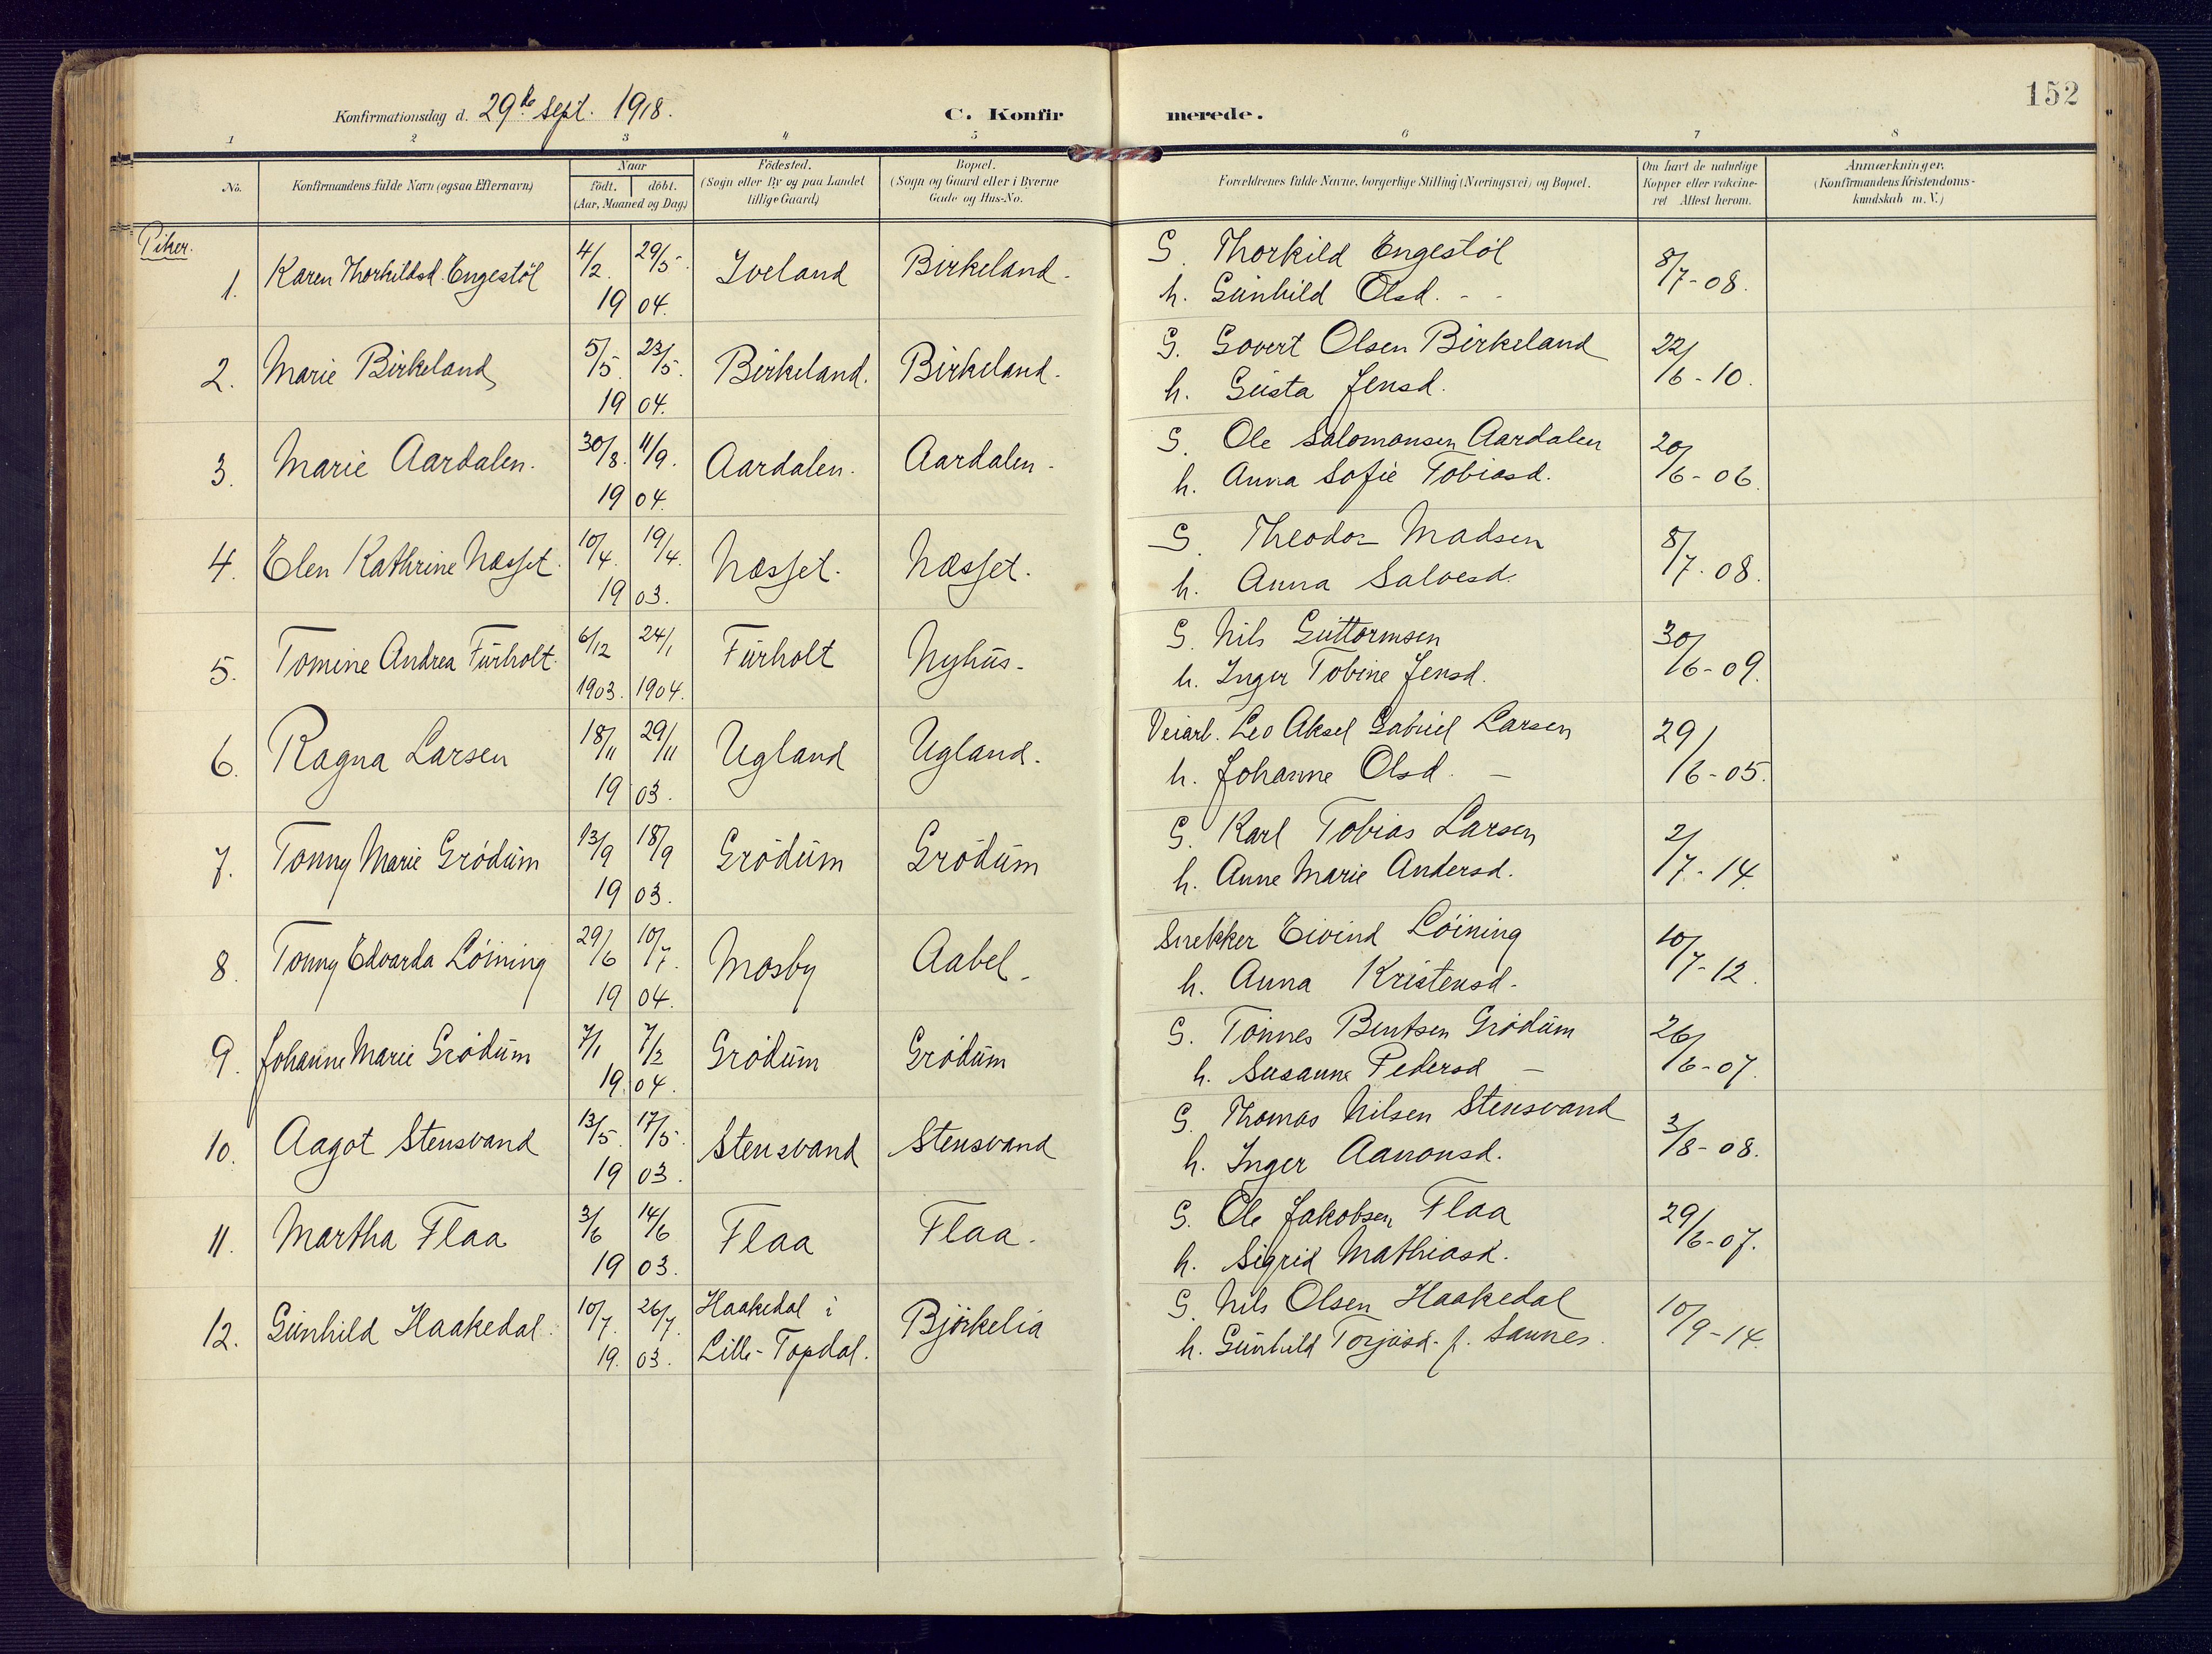 152
Konfirmationsdag d. 29de Sept. 1918.
C. Konfirmerede.
1 2 3 4 5 6 7 8
No.
Konfirmandens fulde Navn (ogsaa Efternavn)
Naar
födt. döbt.
(Aar, Maaned og Dag)
Födested.
(Sogn eller By og paa Landet
tillige Gaard)
Bopæl.
(Sogn og Gaard eller i Byerne
Gade og Hus-No.
Forældrenes fulde Navne, borgerlige Stilling (Næringsvei) og Bopæl.
Om havt de naturlige
Kopper eller vakcine-
ret Attest herom.
Anmærkninger,
(Konfirmandens Kristendoms-
kundskab m. V.)
Piker.
1. Karen Thorkildsd. Engestöl 4/2. 29/5. Iveland Birkeland.
19 04.
G. Thorkild Engestöl
h. Gunhild Olsd. - -
8/7-08.
2. Marie Birkeland 5/5. 23/5. Birkeland. Birkeland.
19 04.
G. Govert Olsen Birkeland
h. Gusta Jensd.
22/6-10.
3. Marie Aardalen. 30/8. 11/9. Aardalen. Aardalen.
19 04.
G. Ole Salomonsen Aardalen
h. Anna Sofie Tobiasd.
20/6-06.
4. Elen Kathrine Næsset. 10/4. 19/4. Næsset. Næsset.
19 03.
G. Theodor Madsen
h. Anna Salvesd.
8/7.08.
5. Tomine Andrea Furholt. 6/12 24/1 Furholt Nyhus.
1903. 1904.
G. Nils Guttormsen
h. Inger Tobine Jensd.
30/6-09.
6. Ragna Larsen 18/11 29/11 Ugland Ugland.
19 03.
Veiarb. Leo Aksel Gabriel Larsen
h. Johanne Olsd. -
29/6-05.
7. Tonny Marie Grödum 13/9 18/9 Grödum Grödum
19 03.
G. Karl Tobias Larsen
h. Anne Marie Andersd.
2/7-14.
8. Tonny Edvarda Löining 29/6 10/7. Mosby Aabel.
19 04.
Snekker Eivind Löining
h. Anna Kristensd.
10/7-12.
9. Johanne Marie Grödum 7/1 7/2 Grödum Grödum
19 04.
G. Tönnes Bentsen Grödum
h. Susanne Pedersd -
26/6-07.
10. Aagot Stensvand 13/5. 17/5. Stensvand Stensvand
19 03.
G. Thomas Nilsen Stensvand
h. Inger Aanonsd.
3/8-08.
11. Martha Flaa 3/6 14/6 Flaa Flaa.
19 03.
G. Ole Jakobsen Flaa
h. Sigrid Mathiasd.
29/6-07.
12. Gunhild Haakedal. 10/7. 26/7. Haakedal i Björkelia
19. 03. Lille-Topdal.
G. Nils Olsen Haakedal
h. Gunhild Torjusd. f. Saunes.
10/9-14.